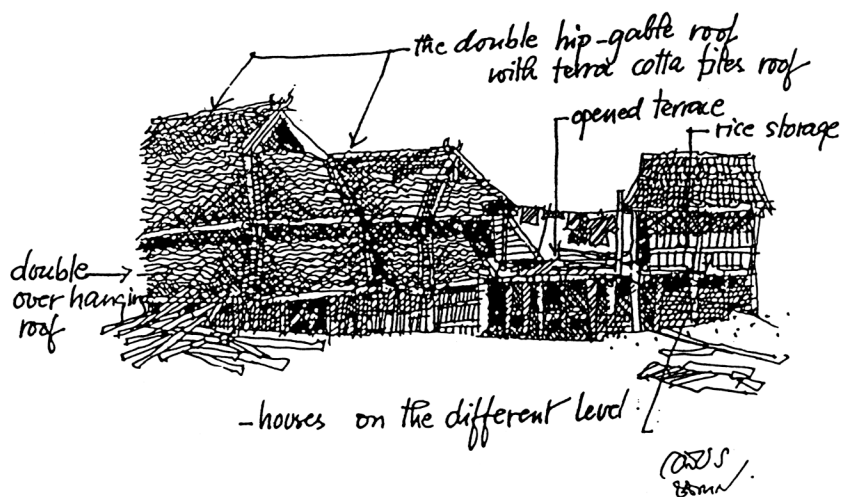 the double hip-gable roof
with terra cotta tiles roof
opened terrace
rice storage
double
over hanging
roof
-houses on the different level